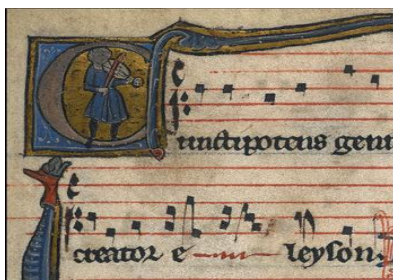 Cunctipotens geni
creator e leyson